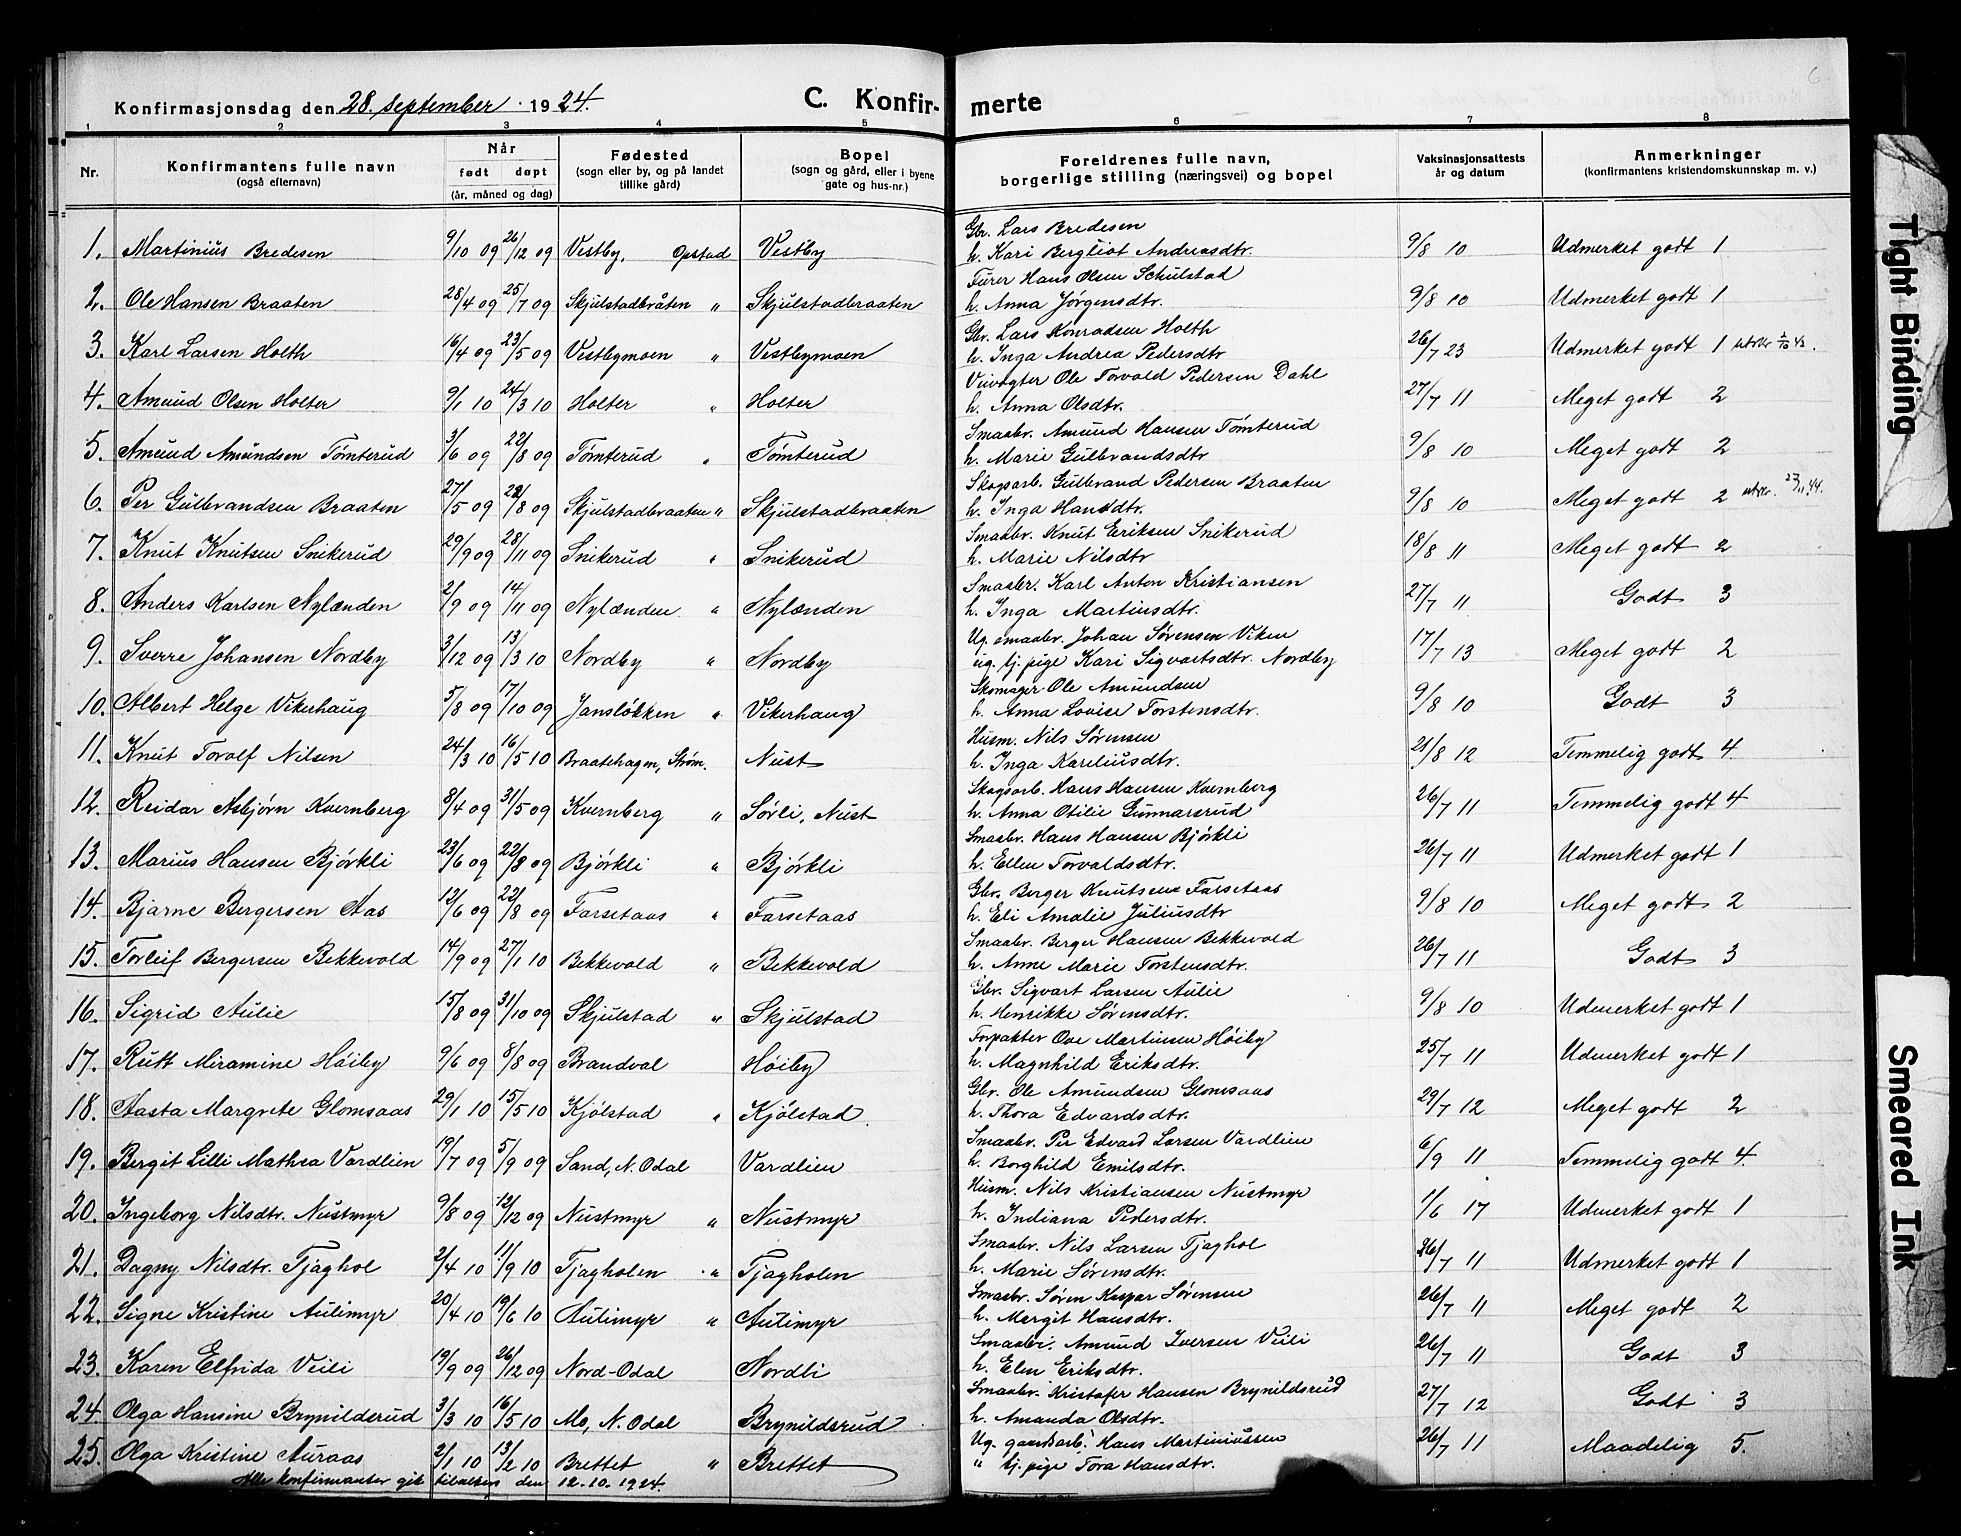 Konfirmasjonsdag den 28. september 1924. C. Konfir-
merte
6
1 2 3 4 5 6 7 8
Nr. Konfirmantens fulle navn (også efternavn) Når født døpt (år, måned og dag) Fødested (sogn eller by, og på landet tillike gård) Bopel (sogn og gård, eller i byene gate og hus-nr.) Foreldrenes fulle navn, borgerlige stilling (næringsvei) og bopel Vaksinasjonsattests år og datum Anmerkninger (konfirmantens kristendomskunnskap m. v.)
Gbr. Lars Bredesen
1. Martinius Bredesen 9/10 09 26/12 09 Vestby, Opstad Vestby h. Kari Bergliot Andreasdtr. 9/8 10 Udmerket godt 1
Furer Hans Olsen Schulstad
2. Ole Hansen Braaten 28/4 09 25/7 09 Skjulstadbråten " Skjulstadbraaten h. Anna Jørgensdtr. 9/8 10 Udmerket godt 1
Gbr. Lars Konradsen Holth
3. Karl Larsen Holth 16/4 09 23/5 09 Vestbymoen " Vestbymoen h. Inga Andrea Pedersdtr 26/7 23 Udmerket godt 1
Veivogter Ole Torvald Pedersen Dahl
4. Amund Olsen Holter 9/1 10 24/3 10 Holter " Holter h. Anna Olsdtr. 27/7 11 Meget godt 2
Smaabr. Amund Hansen Tømterud
5. Amund Amundsen Tømterud 3/6 09 22/8 09 Tømterud " Tømterud h. Marie Gulbrandsdtr 9/8 10 Meget godt 2
Skogsarb. Gulbrand Pedersen Braaten
6. Per Gulbrandsen Braaten 27/5 09 22/8 09 Skjulstadbraaten " Skjulstadbraaten h. Inga Hansdtr. 9/8 10 Meget godt 2 utskr. 23/11 44.
Smaabr. Knut Eriksen Snikerud
7. Knut Knutsen Snikerud 29/9 09 28/11 09 Snikerud " Snikerud h. Marie Nilsdtr 18/8 11 Meget godt 2
Smaabr. Karl Anton Kristiansen
8. Anders Karlsen Nylænden 2/9 09 14/11 09 Nylænden " Nylænden h. Inga Martinsdtr. 27/7 11 Godt 3
Ug. smaabr. Johan Sørensen Viken
9. Sverre Johansen Nordby 3/12 09 13/3 10 Nordby " Nordby ug. tj. pige Kari Sigvartsdtr. Nordby 17/7 13 Meget godt 2
Skomager Ole Amundsen
10. Albert Helge Vikerhaug 5/8 09 17/10 09 Jansløkken " Vikerhaug h. Anna Lovise Torstensdtr. 9/8 10 Godt 3
Husm. Nils Sørensen
11. Knut Torolf Nilsen 24/3 10 16/5 10 Braatehagen, Strøm. Nust h. Inga Kareliusdtr. 21/8 12 Temmelig godt 4
Skogsarb. Hans Hansen Kvernberg
12. Reidar Asbjørn Kvernberg 8/4 09 31/5 09 Kvernberg " Sørli, Nust h. Anna Otilie Gunnarsrud 26/7 11 Temmelig godt 4
Smaabr. Hans Hansen Bjørkli
13. Marius Hansen Bjørkli 23/6 09 22/8 09 Bjørkli " Bjørkli h. Ellen Torvaldsdtr. 26/7 11 Udmerket godt 1
Gbr. Berger Knutsen Farsetaas
14. Bjarne Bergersen Aas 12/6 09 22/8 09 Farsetaas " Farsetaas h. Eli Amalie Juliusdtr 9/8 10 Meget godt 2
Smaabr. Berger Hansen Bekkevold
15. Torleif Bergersen Bekkevold 14/9 09 27/1 10 Bekkevold " Bekkevold h. Anne Marie Torstensdtr. 26/7 11 Godt 3
Gbr. Sigvart Larsen Aulie
16. Sigrid Aulie 15/8 09 31/10 09 Skjulstad " Skjulstad h. Henrikke Sørensdtr. 9/8 10 Udmerket godt 1
Forpakter Ove Martinsen Høiby
17. Rutt Miramine Høiby 9/6 09 8/8 09 Brandval Høiby h. Magnhild Eriksdtr. 25/7 11 Udmerket godt 1
Gbr. Ole Amundsen Glomsaas
18. Aasta Margrete Glomsaas 29/1 10 15/5 10 Kjølstad " Kjølstad. h. Thora Edvardsdtr. 29/7 12 Meget godt 2
Smaabr. Per Edvard Larsen Vardlien
19. Bergit Lilli Mathea Vardlien 19/7 09 5/9 09 Sand, N. Odal Vardlien h. Borghild Emilsdtr. 6/9 11 Temmelig godt 4.
Husm. Nils Kristiansen Nustmyr
20. Ingeborg Nilsdtr. Nustmyr 9/8 09 12/12 09 Nustmyr " Nustmyr h. Indiana Pedersdtr. 1/6 17 Udmerket godt 1
Smaabr. Nils Larsen Tjaghol
21. Dagny Nilsdtr. Tjaghol 2/4 10 11/9 10 Tjagholen " Tjagholen h. Marie Sørensdtr. 26/7 11 Udmerket godt 1
Smaabr. Søren Kaspar Sørensen
22. Signe Kristine Aulimyr 20/4 10 19/6 10 Aulimyr " Aulimyr h. Mergit Hansdtr. 26/7 11 Meget godt 2
Smaabr. Amund Iversen Veili
23. Karen Elfrida Veili 19/9 09 26/12 09 Nord-Odal Nordli h. Elen Eriksdtr. 26/7 11 Godt 3
Smaabr. Kristofer Hansen Brynildsrud
24. Olga Hansine Brynildsrud 3/3 10 16/5 10 Mo, N. Odal Brynildsrud h. Amanda Olsdtr. 27/7 12 Godt 3
Ug. gaardsarb. Hans Martiniussen
25. Olga Kristine Auraas 2/1 10 13/2 10 Brettet " Brettet " tj. pige Tora Hansdtr. 26/7 11 Maadelig 5.
Alle konfirmanter gik tilalters den 12.10.1924.
Tight Binding
Smeared Ink